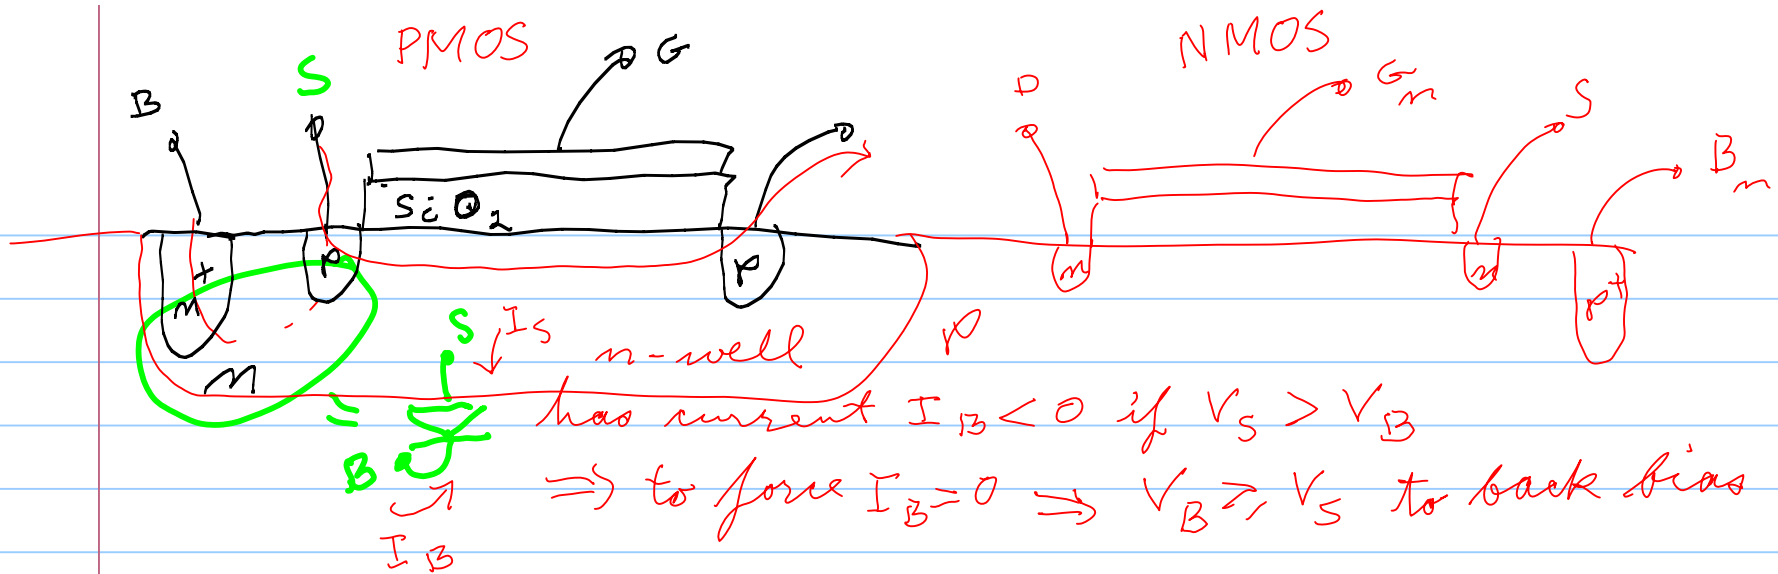 PMOS
NMOS
B
S
G
D
G n
S
B n
SiO2
n+
p
p
n
n
p+
n
n-well
p
S
I S
B
I B
has current I B < 0 if V S > V B
⇒ to force I B = 0 ⇒ V B ≥ V S to back bias